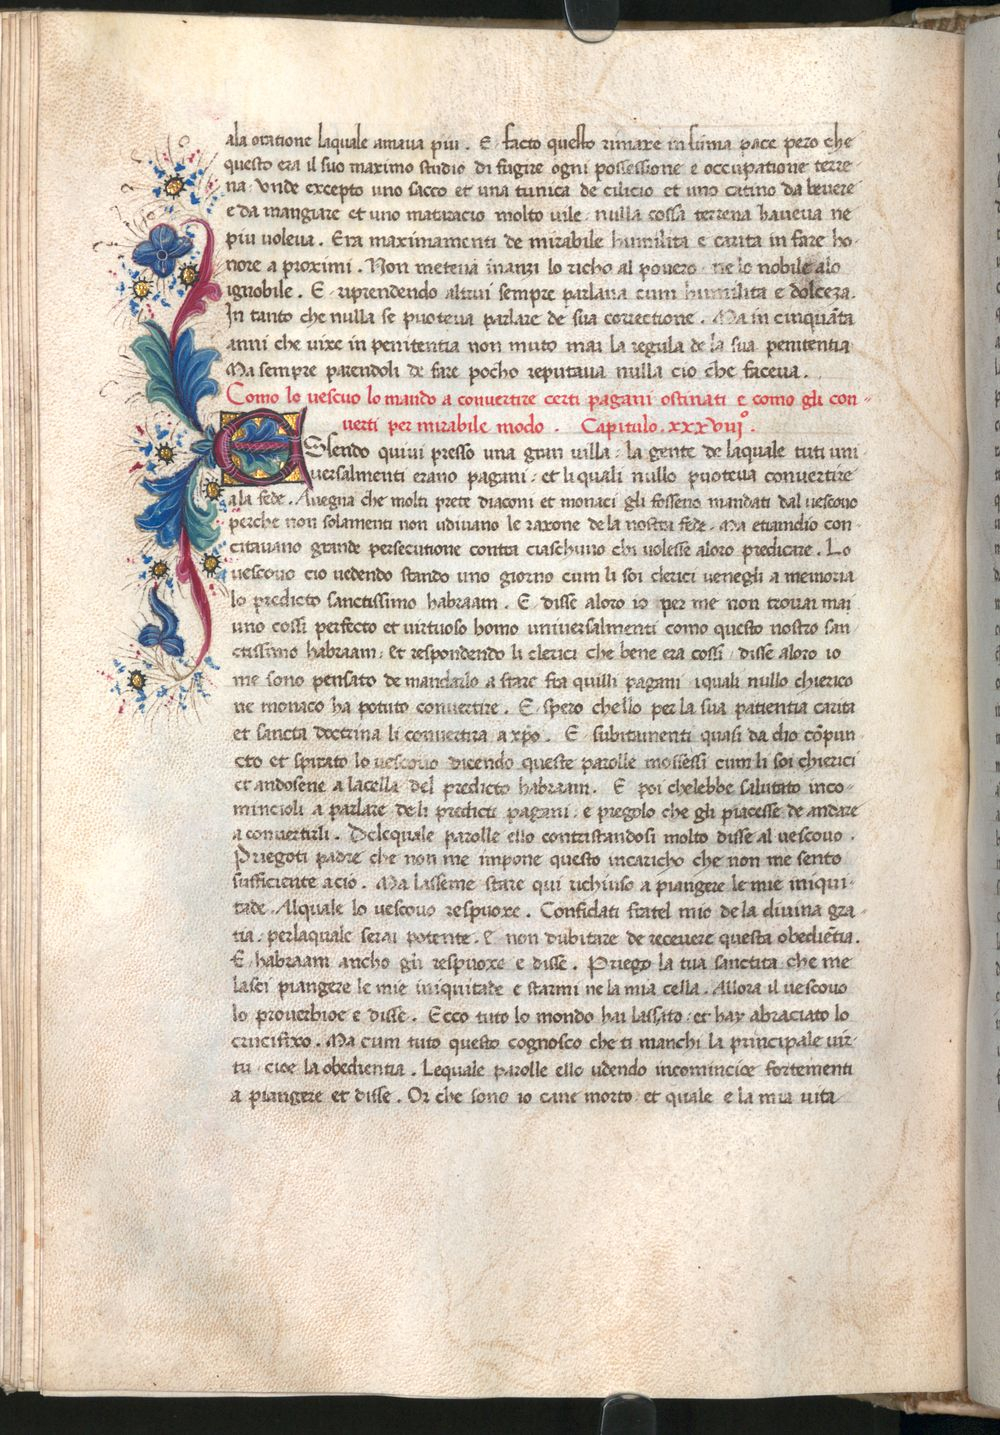 ala oratione laquale amaua piu . E facto questo rimaxe in soma pace pero che
questo era il suo maximo studio di fugire ogni possessione e occupatione terre-
na · vnde excepto uno sacco et una tunica de cilicio et uno catino da beuere
e da mangiare et uno mataracio molto uile · nulla cossa terrena haueua ne
piu uoleua . Era maximamenti de mirabile humilita e carita in fare ho-
nore a proximi . Non meteua inanzi lo richo al pouero · ne lo nobile alo
ignobile . E · riprendendo altrui sempre parlaua cum humilita e dolceza .
In tanto che nulla se puoteua parlare de sua correctione . Ma in cinquāta
anni che uixe in penitentia non muto mai la regula de la sua penitentia
Ma sempre parendoli de fare pocho reputaua nulla cio che faceua .
Como lo uescuo lo mando a conuertire certi pagani ostinati e como gli con-
uerti per mirabile modo . Capitulo . xxxviijº .
ESsendo quiui presso una gran uilla · la gente de laquale tuti uni-
uersalmenti erano pagani · et li quali nullo puoteua conuertire
a la fede . Auegna che molti prete diaconi et monaci gli fosseno mandati dal uescouo
perche non solamenti non udiuano le raxone de la nostra fede . Ma etiamdio con-
citauano grande persecutione contra ciaschuno chi uolesse aloro predicare . Lo
uescouo cio uedendo stando uno giorno cum li soi clerici uenegli a memoria
lo predicto sanctissimo habraam . E disse aloro io per me non trouai mai
uno cossi perfecto et uirtuoso homo uniuersalmenti como questo nostro san-
ctissimo habraam · Et respondendo li clerici che bene era cossi · disse aloro io
me sono pensato de mandarlo a stare fra quilli pagani iquali nullo chierico
ne monaco ha potuto conuertire . E spero chello per la sua patientia carita
et sancta doctrina li conuertira a xp̄o . E subitamenti quasi da dio cōpun-
cto et spirato lo uescouo dicendo queste parolle mossessi cum li soi chierici
et andosene a la cella del predicto habraam . E poi chelebbe salutato inco-
mincioli a parlare de li predicti pagani · e pregolo che gli piacesse de andare
a conuertirli . Delequale parolle ello contristandosi molto disse al uescouo .
Priegoti padre che non me impone questo incaricho che non me sento
sufficiente a cio . Ma lasseme stare qui richiuso a piangere le mie iniqui-
tade . Alquale lo uescouo respuoxe . Confidati fratel mio de la diuina gra-
tia · perlaquale serai potente · E non dubitare de receuere questa obediētia .
E habraam ancho gli respuoxe e disse . Priego la tua sanctita che me
lasci piangere le mie iniquitade e starmi ne la mia cella . Allora il uescouo
lo prouerbioe e disse . Ecco tuto lo mondo hai lassato · et hay abraciato lo
crucifixo . Ma cum tuto questo cognosco che ti manchi la principale uir-
tu · cioe la obedientia . Lequale parolle ello udendo incomincioe fortementi
a piangere et disse . Or che sono io cane morto · et quale e la mia uita